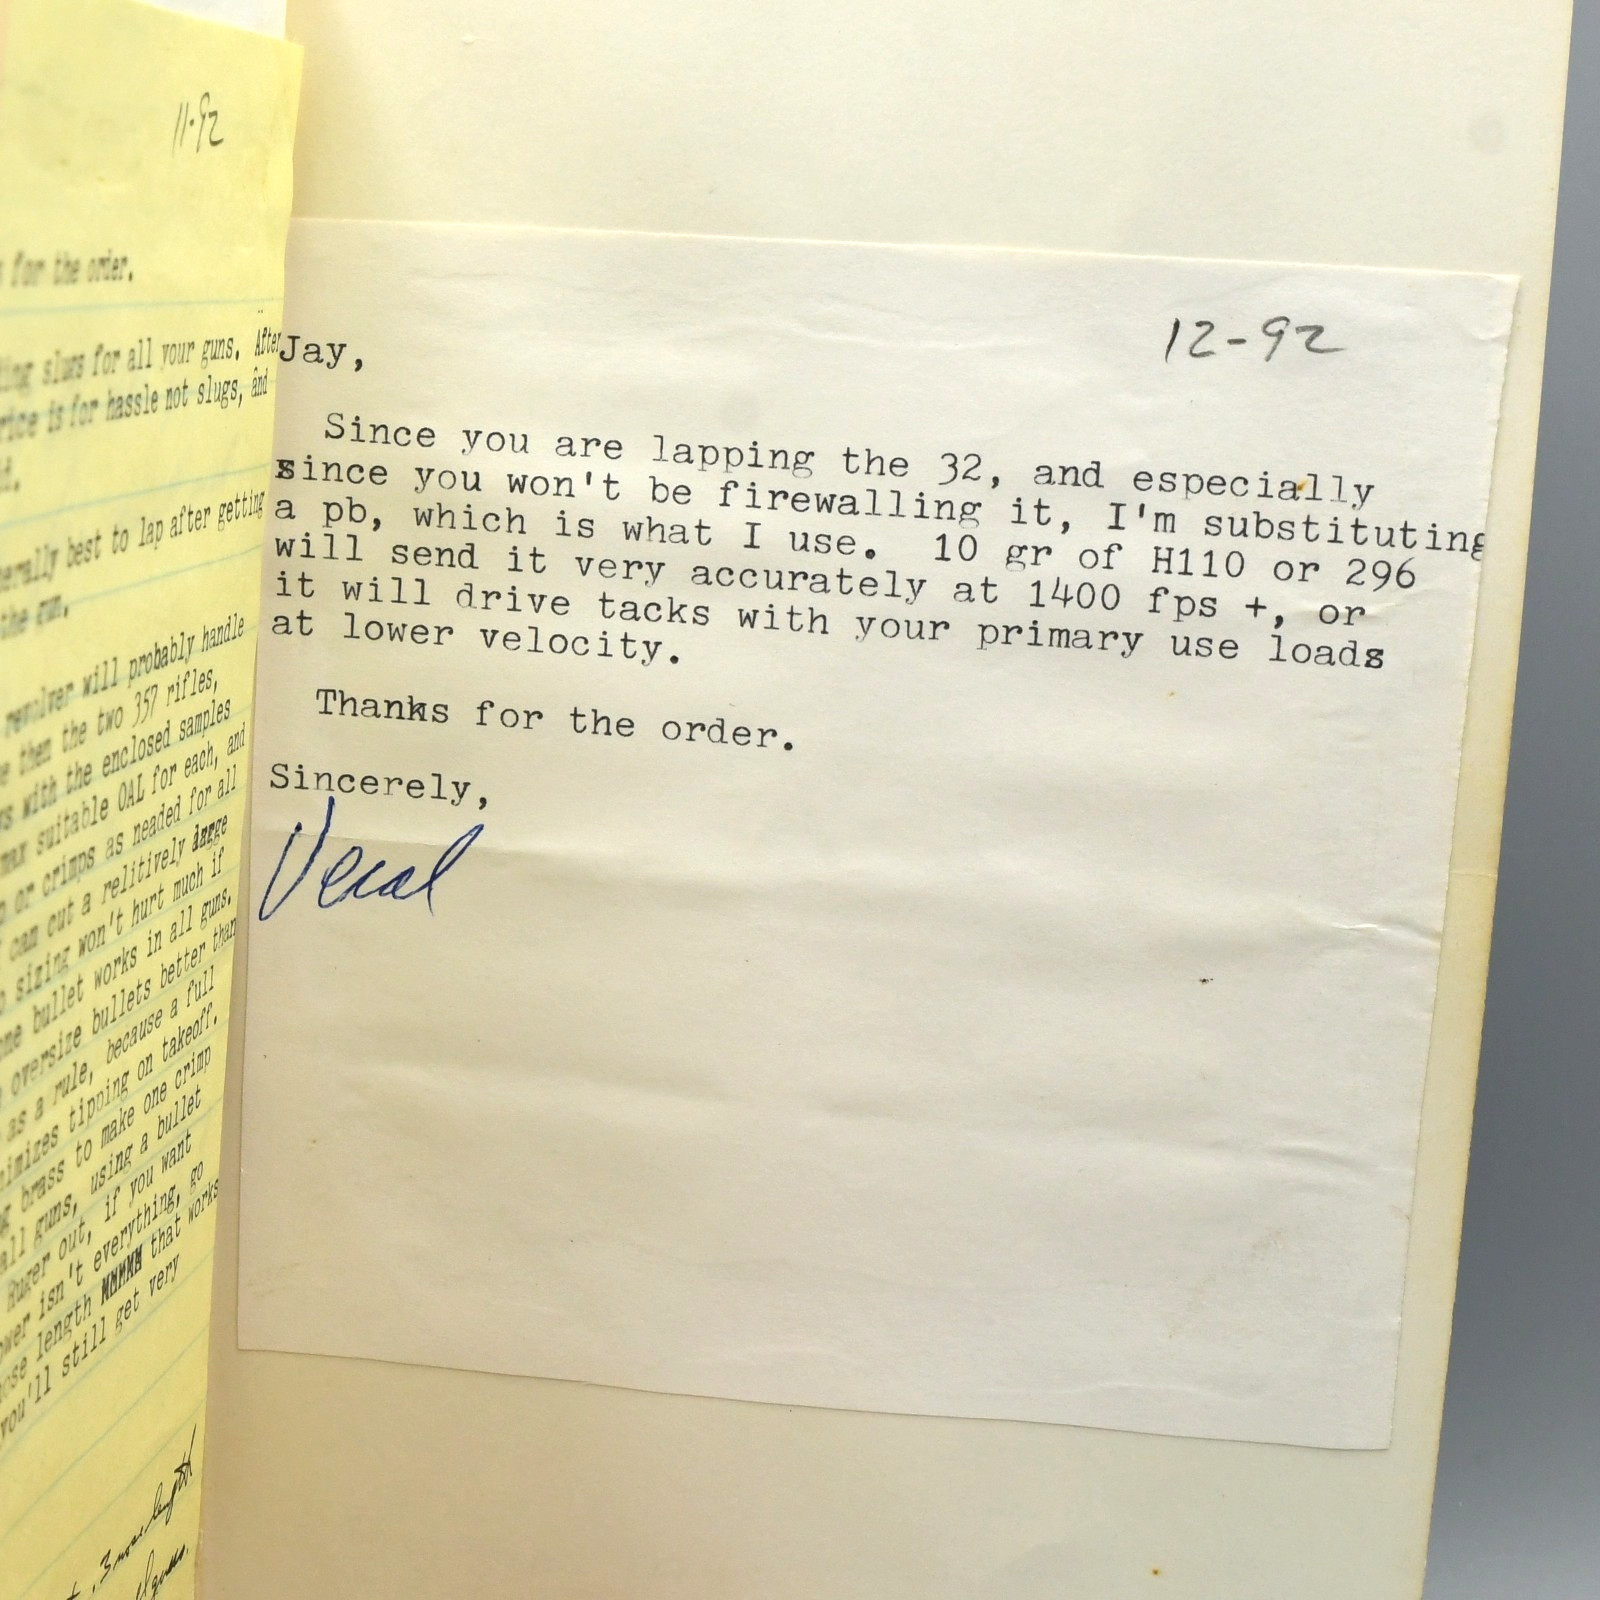 11-92
for the order.
slugs for all your guns. After
is for hassle not slugs, and
best to lap after getting
the gun.
revolver will probably handle
then the two 357 rifles,
with the enclosed samples
max suitable OAL for each, and
or crimps as needed for all
can cut a relitively large
sizing won't hurt much if
bullet works in all guns.
oversize bullets better than
as a rule, because a full
tipping on takeoff.
brass to make one crimp
all guns, using a bullet
Ruger out, if you want
isn't everything, go
length MMMMM that works
you'll still get very
3 nose length
12-92
Jay,
Since you are lapping the 32, and especially
since you won't be firewalling it, I'm substituting
a pb, which is what I use. 10 gr of H110 or 296
will send it very accurately at 1400 fps +, or
it will drive tacks with your primary use loads
at lower velocity.
Thanks for the order.
Sincerely,
Veral